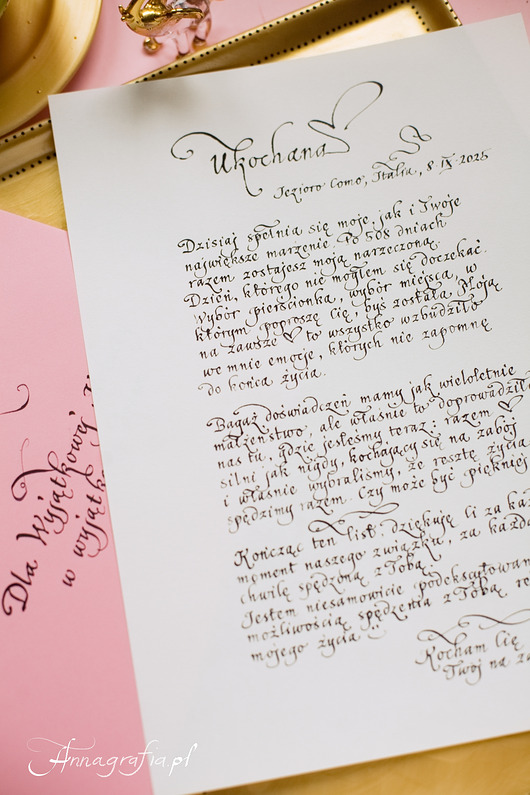 Ukochana
Jezioro Como, Italia, 8.IX.2025
Dzisiaj spełnia się moje, jak i Twoje
największe marzenie. Po 508 dniach
razem zostajesz moją narzeczoną.
Dzień, którego nie mogłem się doczekać.
Wybór pierścionka, wybór miejsca, w
którym poproszę Cię, byś została Moją
na zawsze ♡ to wszystko wzbudziło
we mnie emocje, których nie zapomnę
do końca życia.
Bagaż doświadczeń mamy jak wieloletnie
małżeństwo, ale właśnie to doprowadziło
nas tu, gdzie jesteśmy teraz: razem ♡
silni jak nigdy, kochający się na zabój
i właśnie wybraliśmy, że resztę życia
spędzimy razem. Czy może być piękniej
Kończąc ten list, dziękuję Ci za każ
moment naszego związku, za każd
chwilę spędzoną z Tobą.
Jestem niesamowicie podekscytowan
możliwością spędzenia z Tobą re
mojego życia
Kocham Cię
Twój na za
Dla Wyjątkowej
w wyjątk
Annagrafia.pl